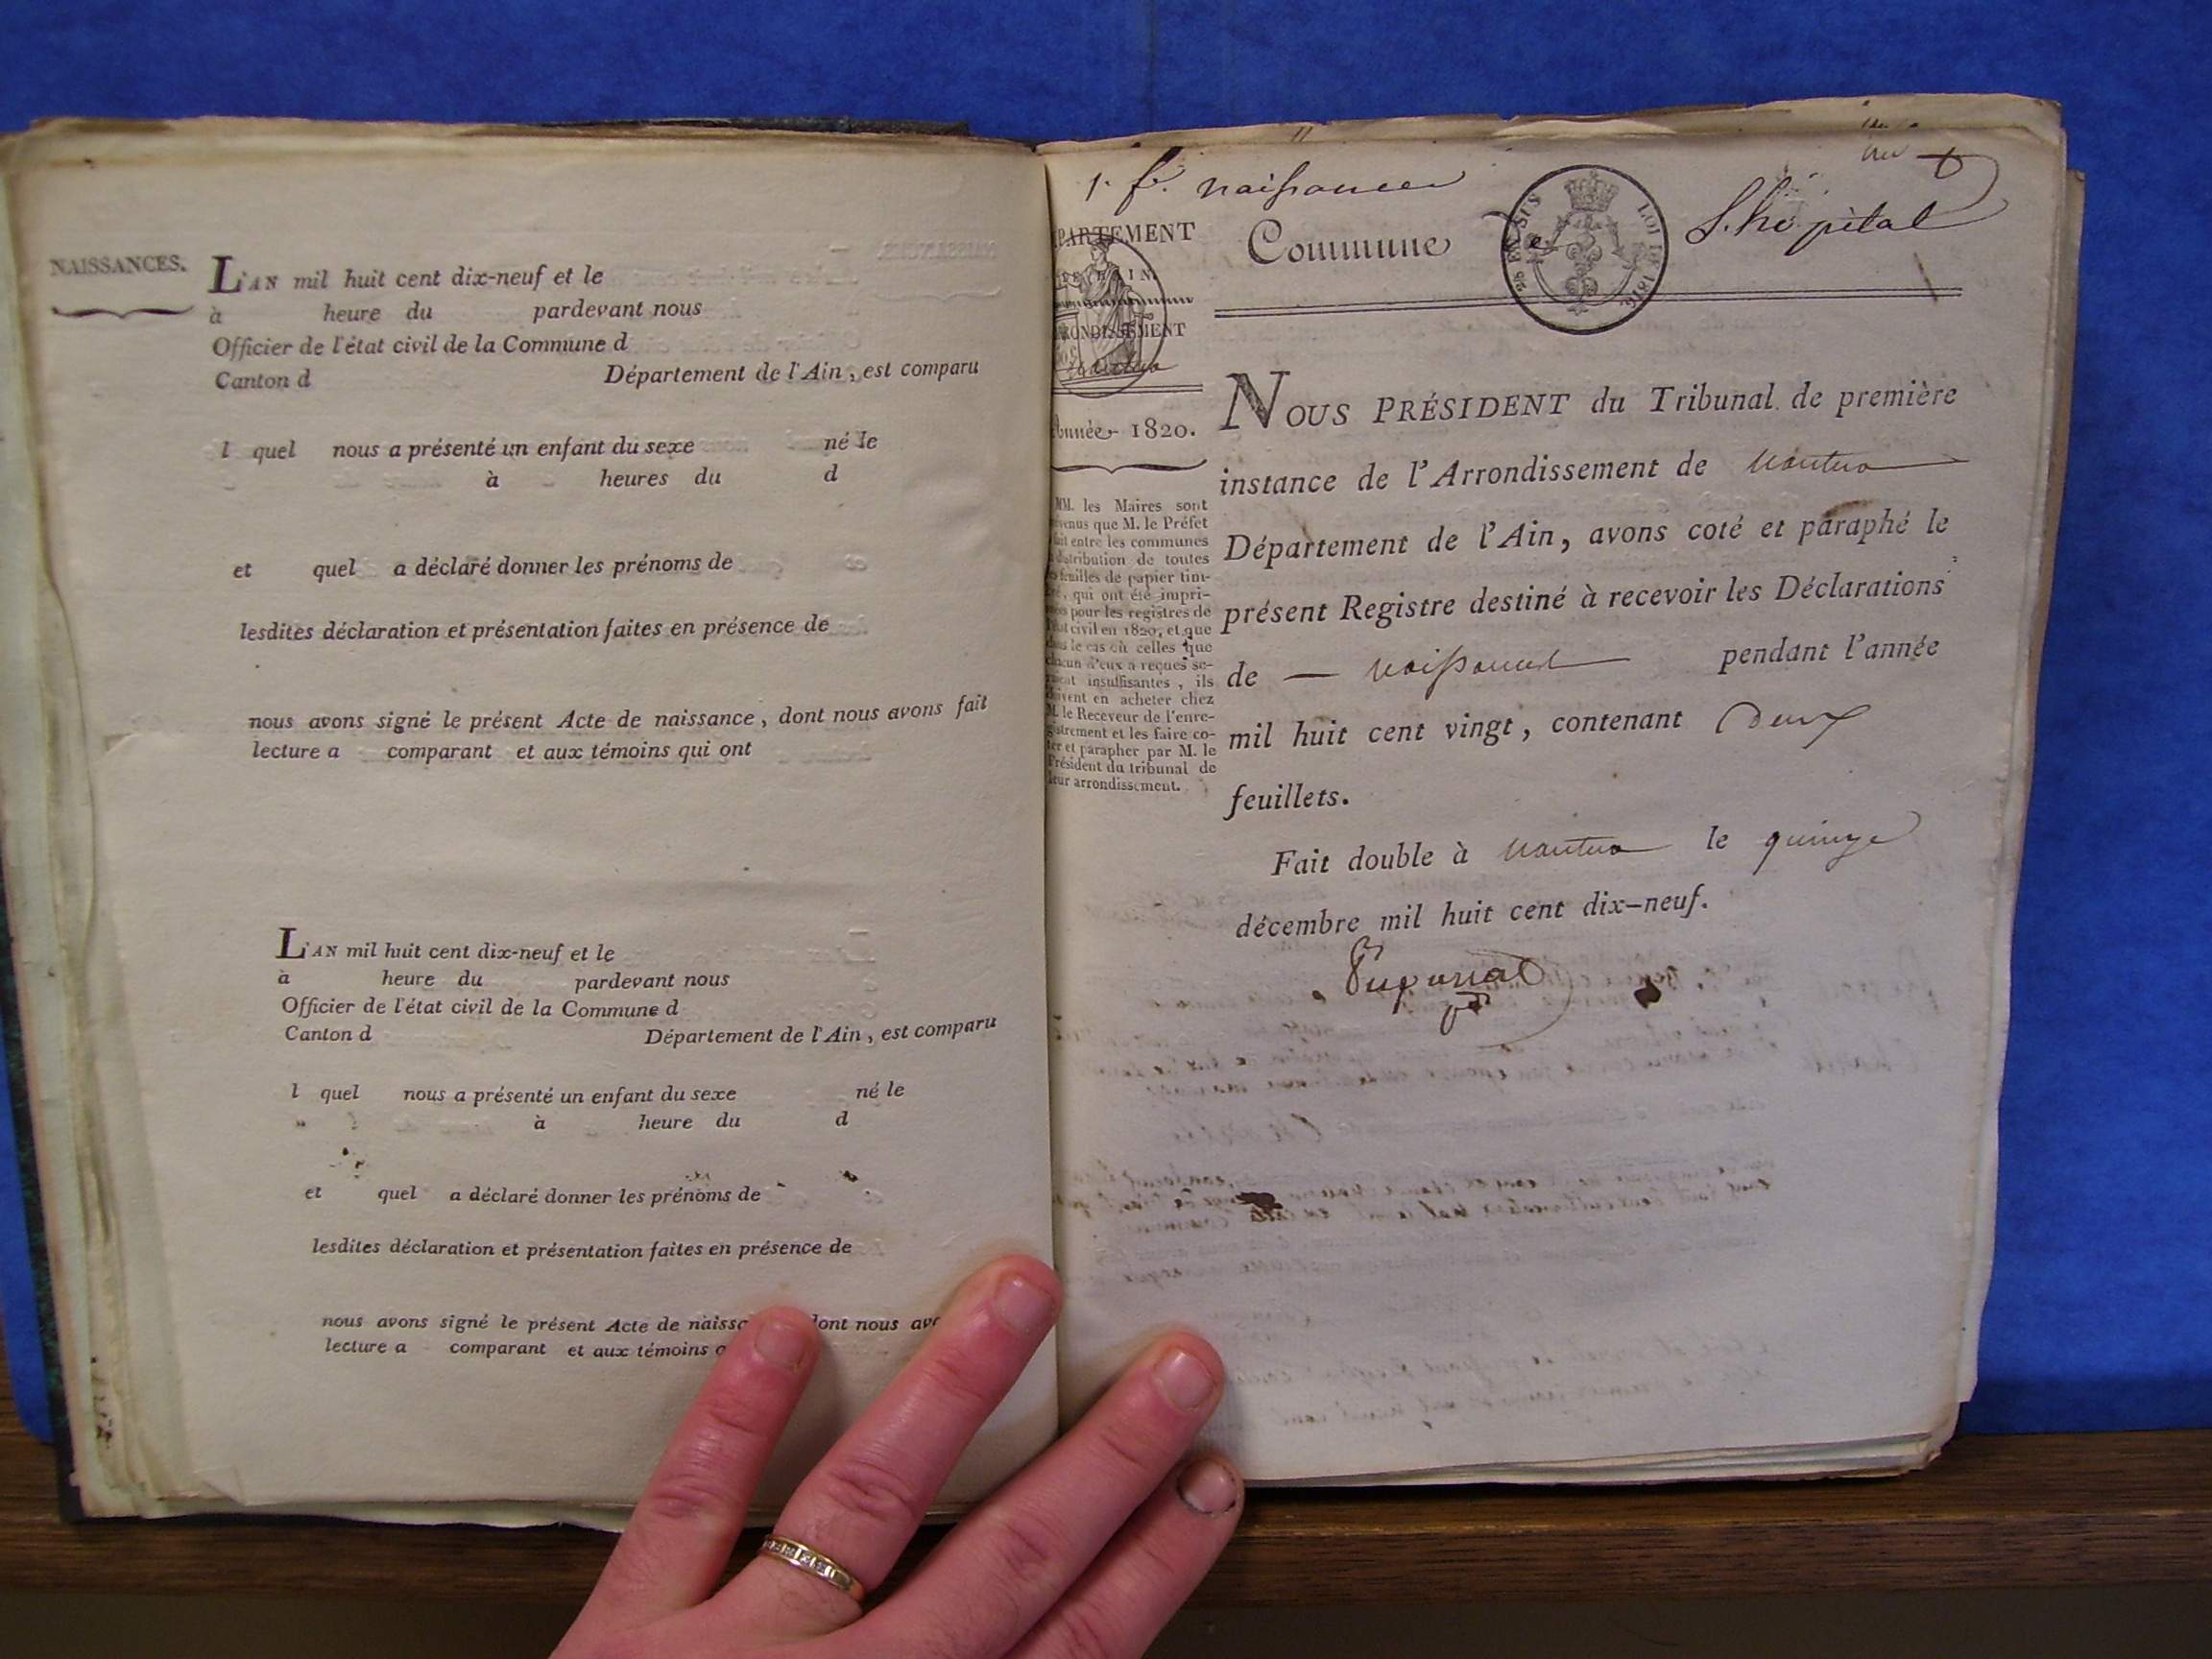 NAISSANCES.
L'AN mil huit cent dix-neuf et le
à heure du pardevant nous
Officier de l'état civil de la Commune d
Canton d Département de l'Ain, est comparu
l quel nous a présenté un enfant du sexe né le
à heures du d
et quel a déclaré donner les prénoms de
lesdites déclaration et présentation faites en présence de
nous avons signé le présent Acte de naissance, dont nous avons fait
lecture a comparant et aux témoins qui ont
L'AN mil huit cent dix-neuf et le
à heure du pardevant nous
Officier de l'état civil de la Commune d
Canton d Département de l'Ain, est comparu
l quel nous a présenté un enfant du sexe né le
à heure du d
et quel a déclaré donner les prénoms de
lesdites déclaration et présentation faites en présence de
nous avons signé le présent Acte de dont nous
lecture a comparant et aux témoins
1. f. naissances
PARTEMENT
Commune de L'hôpital
LOI DE 1816
AIN
ARRONDISSEMENT
Nantua
Année 1820.
MM. les Maires sont
venus que M. le Préfet
fait entre les communes
distribution de toutes
feuilles de papier tim-
, qui ont été impri-
pour les registres de
civil en 1820, et que
le cas où celles que
chacun d'eux a reçues se-
insuffisantes, ils
doivent en acheter chez
M. le Receveur de l'enre-
gistrement et les faire co-
ter et parapher par M. le
Président du tribunal de
leur arrondissement.
NOUS PRÉSIDENT du Tribunal de première
instance de l'Arrondissement de Nantua
Département de l'Ain, avons coté et paraphé le
présent Registre destiné à recevoir les Déclarations
de — naissances pendant l'année
mil huit cent vingt, contenant Deux
feuillets.
Fait double à Nantua le quinze
décembre mil huit cent dix-neuf.